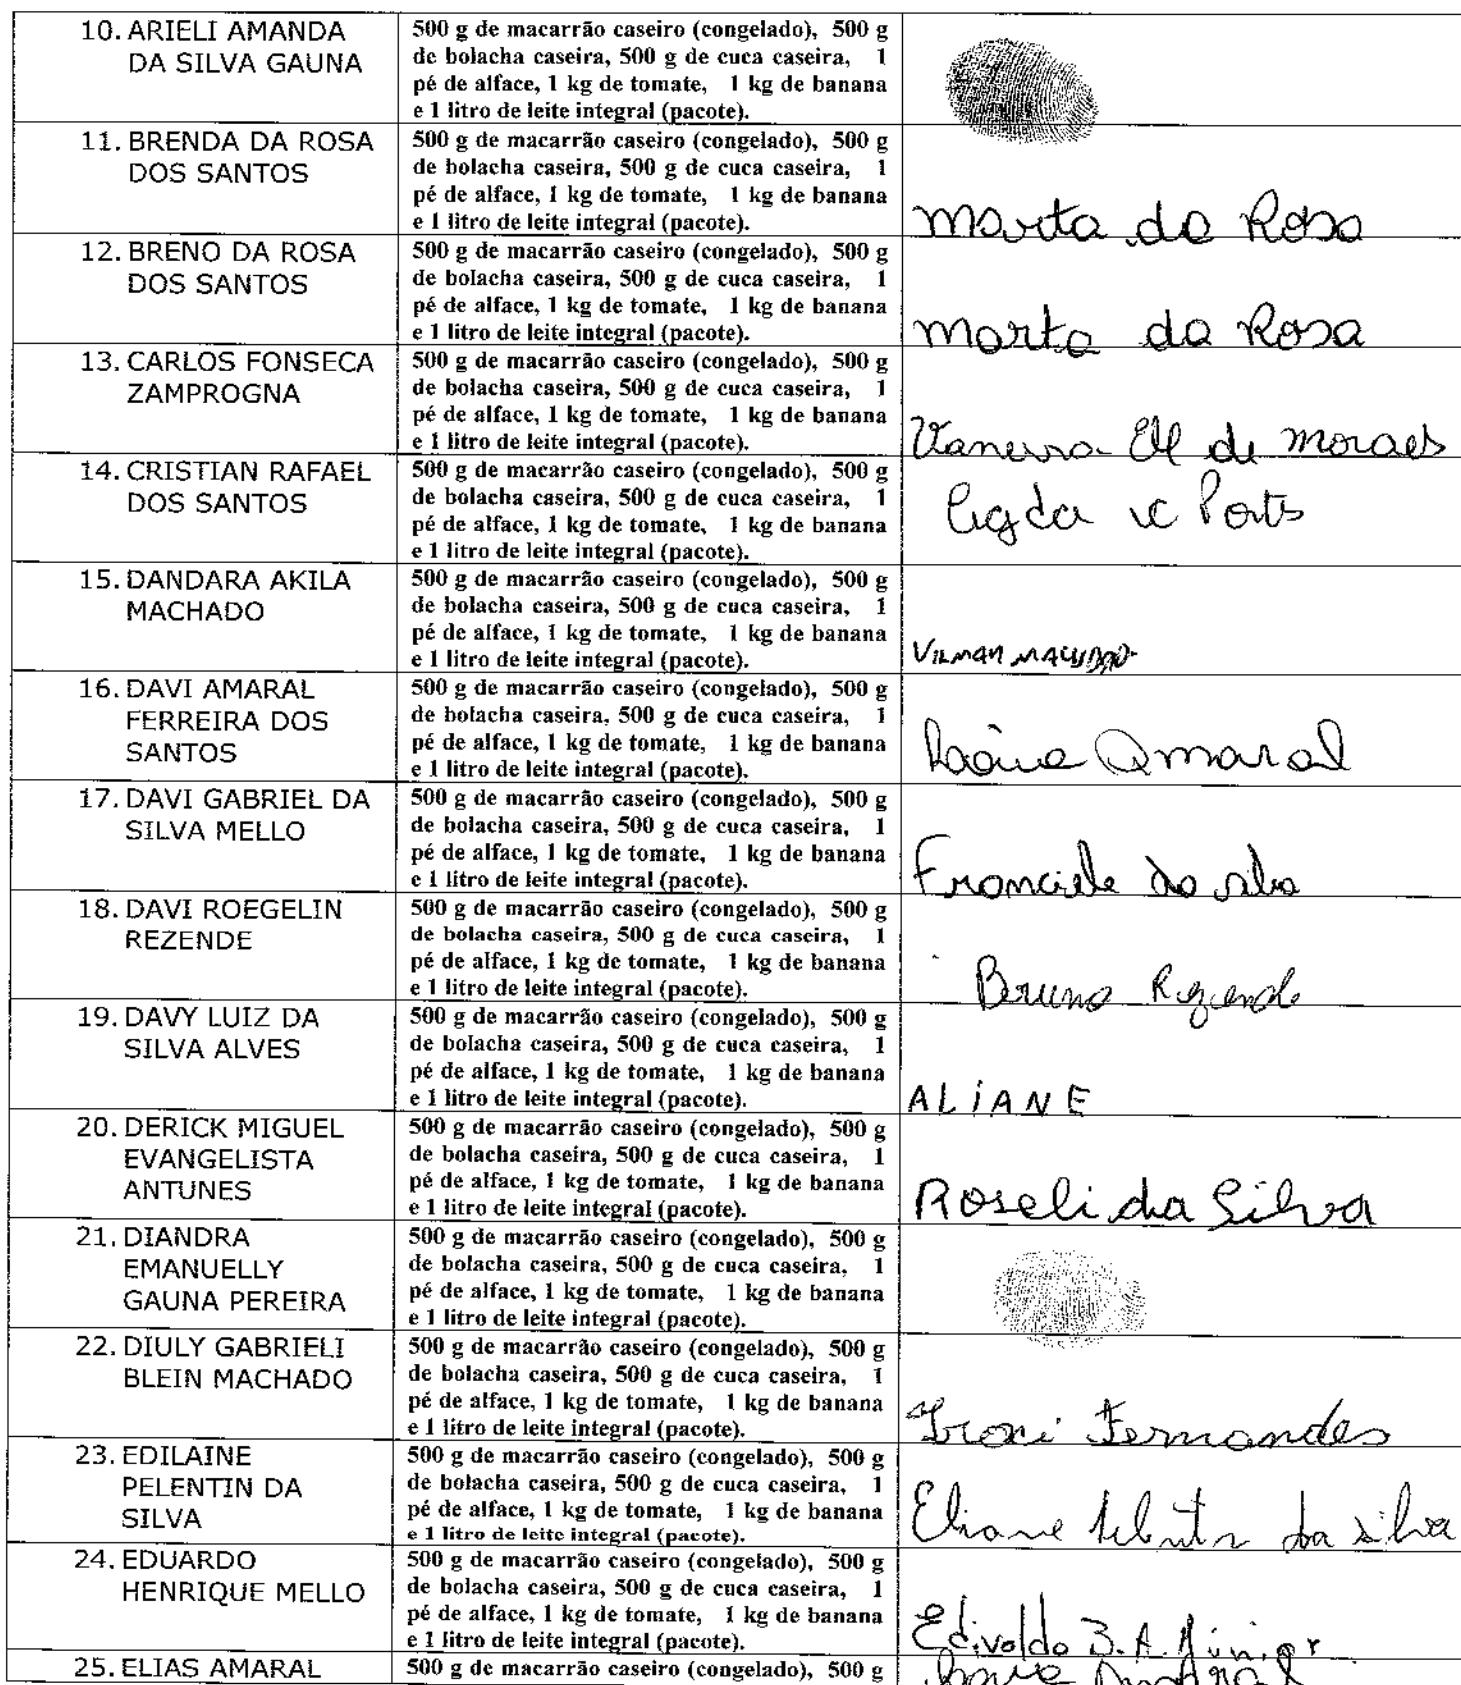 10. ARIELI AMANDA
DA SILVA GAUNA
500 g de macarrão caseiro (congelado), 500 g
de bolacha caseira, 500 g de cuca caseira, 1
pé de alface, 1 kg de tomate, 1 kg de banana
e 1 litro de leite integral (pacote).
11. BRENDA DA ROSA
DOS SANTOS
500 g de macarrão caseiro (congelado), 500 g
de bolacha caseira, 500 g de cuca caseira, 1
pé de alface, 1 kg de tomate, 1 kg de banana
e 1 litro de leite integral (pacote).
Marta da Rosa
12. BRENO DA ROSA
DOS SANTOS
500 g de macarrão caseiro (congelado), 500 g
de bolacha caseira, 500 g de cuca caseira, 1
pé de alface, 1 kg de tomate, 1 kg de banana
e 1 litro de leite integral (pacote).
Marta da Rosa
13. CARLOS FONSECA
ZAMPROGNA
500 g de macarrão caseiro (congelado), 500 g
de bolacha caseira, 500 g de cuca caseira, 1
pé de alface, 1 kg de tomate, 1 kg de banana
e 1 litro de leite integral (pacote).
Vanessa de Moraes
14. CRISTIAN RAFAEL
DOS SANTOS
500 g de macarrão caseiro (congelado), 500 g
de bolacha caseira, 500 g de cuca caseira, 1
pé de alface, 1 kg de tomate, 1 kg de banana
e 1 litro de leite integral (pacote).
15. DANDARA AKILA
MACHADO
500 g de macarrão caseiro (congelado), 500 g
de bolacha caseira, 500 g de cuca caseira, 1
pé de alface, 1 kg de tomate, 1 kg de banana
e 1 litro de leite integral (pacote).
VILMAN MACHADO
16. DAVI AMARAL
FERREIRA DOS
SANTOS
500 g de macarrão caseiro (congelado), 500 g
de bolacha caseira, 500 g de cuca caseira, 1
pé de alface, 1 kg de tomate, 1 kg de banana
e 1 litro de leite integral (pacote).
Amaral
17. DAVI GABRIEL DA
SILVA MELLO
500 g de macarrão caseiro (congelado), 500 g
de bolacha caseira, 500 g de cuca caseira, 1
pé de alface, 1 kg de tomate, 1 kg de banana
e 1 litro de leite integral (pacote).
Franciele da silva
18. DAVI ROEGELIN
REZENDE
500 g de macarrão caseiro (congelado), 500 g
de bolacha caseira, 500 g de cuca caseira, 1
pé de alface, 1 kg de tomate, 1 kg de banana
e 1 litro de leite integral (pacote).
Bruno Rezende
19. DAVY LUIZ DA
SILVA ALVES
500 g de macarrão caseiro (congelado), 500 g
de bolacha caseira, 500 g de cuca caseira, 1
pé de alface, 1 kg de tomate, 1 kg de banana
e 1 litro de leite integral (pacote).
ALIANE
20. DERICK MIGUEL
EVANGELISTA
ANTUNES
500 g de macarrão caseiro (congelado), 500 g
de bolacha caseira, 500 g de cuca caseira, 1
pé de alface, 1 kg de tomate, 1 kg de banana
e 1 litro de leite integral (pacote).
Roseli da Silva
21. DIANDRA
EMANUELLY
GAUNA PEREIRA
500 g de macarrão caseiro (congelado), 500 g
de bolacha caseira, 500 g de cuca caseira, 1
pé de alface, 1 kg de tomate, 1 kg de banana
e 1 litro de leite integral (pacote).
22. DIULY GABRIELI
BLEIN MACHADO
500 g de macarrão caseiro (congelado), 500 g
de bolacha caseira, 500 g de cuca caseira, 1
pé de alface, 1 kg de tomate, 1 kg de banana
e 1 litro de leite integral (pacote).
Fernandes
23. EDILAINE
PELENTIN DA
SILVA
500 g de macarrão caseiro (congelado), 500 g
de bolacha caseira, 500 g de cuca caseira, 1
pé de alface, 1 kg de tomate, 1 kg de banana
e 1 litro de leite integral (pacote).
Eliane da silva
24. EDUARDO
HENRIQUE MELLO
500 g de macarrão caseiro (congelado), 500 g
de bolacha caseira, 500 g de cuca caseira, 1
pé de alface, 1 kg de tomate, 1 kg de banana
e 1 litro de leite integral (pacote).
Edivaldo B. A. Júnior
25. ELIAS AMARAL
500 g de macarrão caseiro (congelado), 500 g